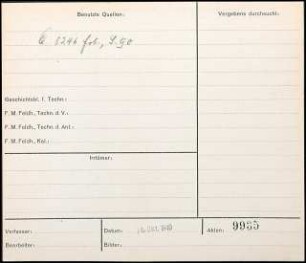 Benutzte Quellen:
Vergebens durchsucht:
E 0244 fol., S. 90
Geschichtsbl. f. Techn.:
F. M. Feldh., Techn. d. V.:
F. M. Feldh., Techn. d. Ant.:
F. M. Feldh., Kal.:
Irrtümer:
Verfasser:
Datum:
Akten: 9985
Bearbeiter:
Bilder: